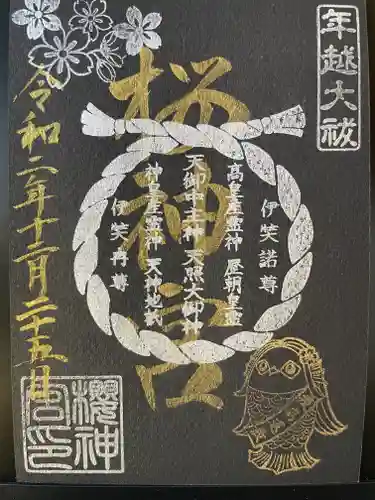 年越大祓
桜神宮
伊笑諾尊
高皇産霊神 歴朝皇霊
天御中主神 天照大御神
神皇産霊神 天神地祇
伊笑冉尊
令和二年十二月二十五日
櫻神宮印